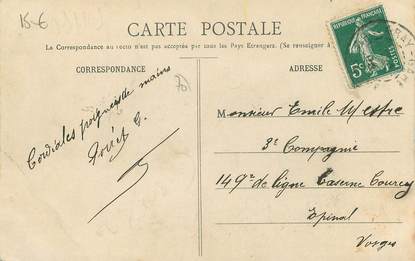 15-6
CARTE POSTALE
La Correspondance au recto n'est pas acceptée par tous les Pays Etrangers. (Se renseigner à
RÉPUBLIQUE FRANÇAISE
5c
POSTES
CORRESPONDANCE
ADRESSE
70
Cordiales poignées de mains
G.
Monsieur Emile Mestre
3e Compagnie
149e de ligne Caserne Courcy
Epinal
Vosges